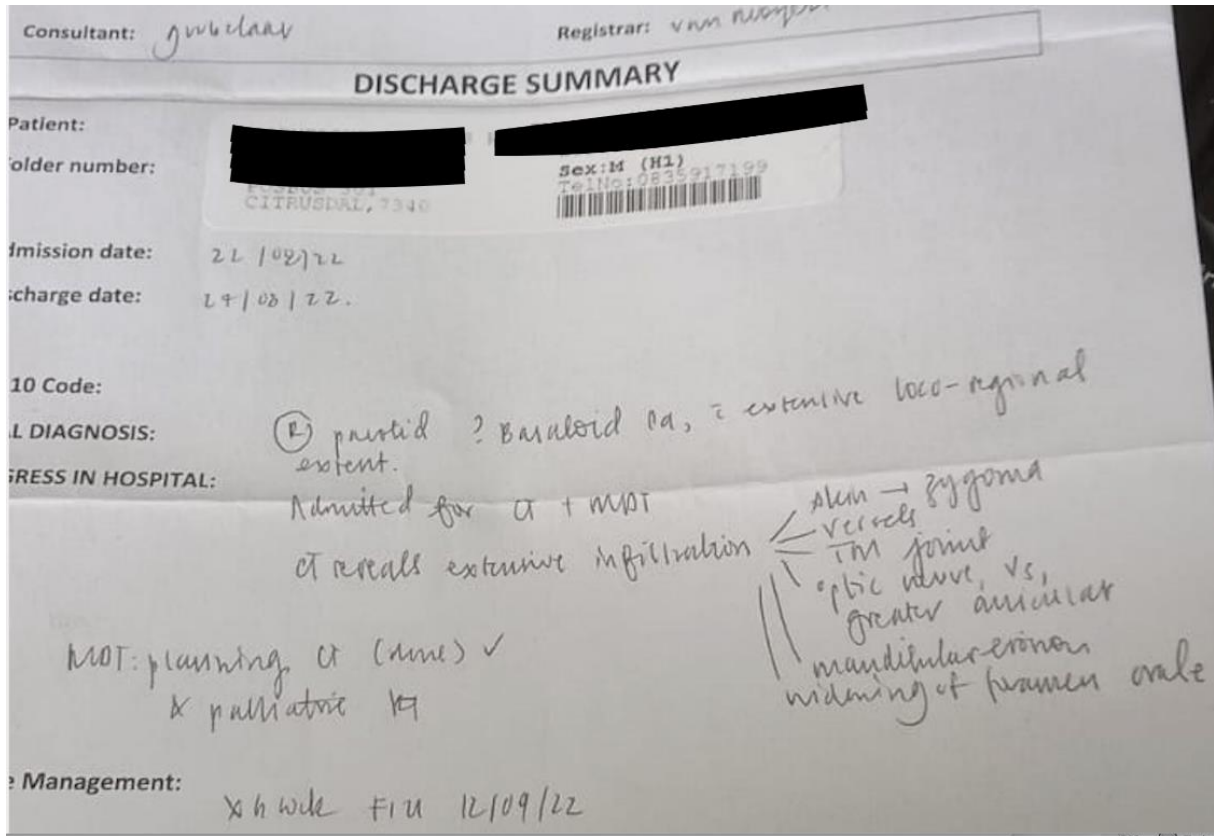 Consultant:
Registrar: van
DISCHARGE SUMMARY
Patient:
older number:
Sex:M (H1)
TelNo:0835917199
CITRUSDAL, 7340
dmission date: 22/08/22
scharge date: /08/22.
10 Code:
L DIAGNOSIS: (R) parotid ? Basaloid Ca, c̄ extensive loco-regional
extent.
GRESS IN HOSPITAL:
Admitted for CT + MDT
CT reveals extensive infiltration
skin → zygoma
vessels
TM joint
optic nerve, V3,
greater auricular
mandibular erosion
widening of foramen ovale
MDT: planning CT (done) ✓
& palliative
e Management:
F/U 12/09/22